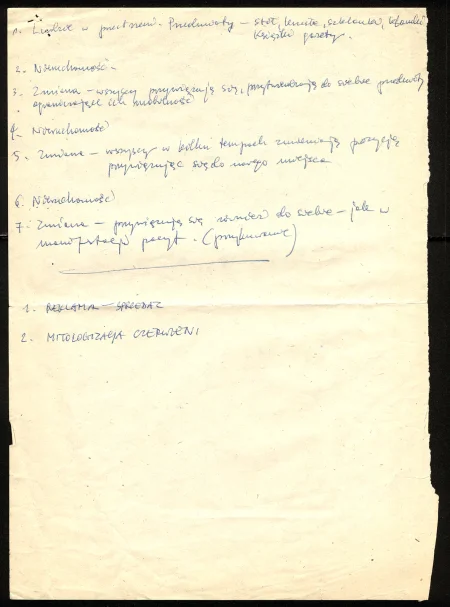 1. Ludzie w przestrzeni. Przedmioty – stół, krzesła, szklanki,
książki gazety.
2. Nieruchomość.
3. Zmiana – wszyscy przywiązują się, przytwierdzają do siebie przedmioty
ograniczające ich mobilność
4. Nieruchomość
5. Zmiana – wszyscy w kilku tempach zmieniają pozycję
przywiązując się do nowego miejsca
6. Nieruchomość
7. Zmiana – przywiązują się również do siebie – jak w
manifestacji
1. REKLAMA – SPRZEDAŻ
2. MITOLOGIZACJA CZERWIENI